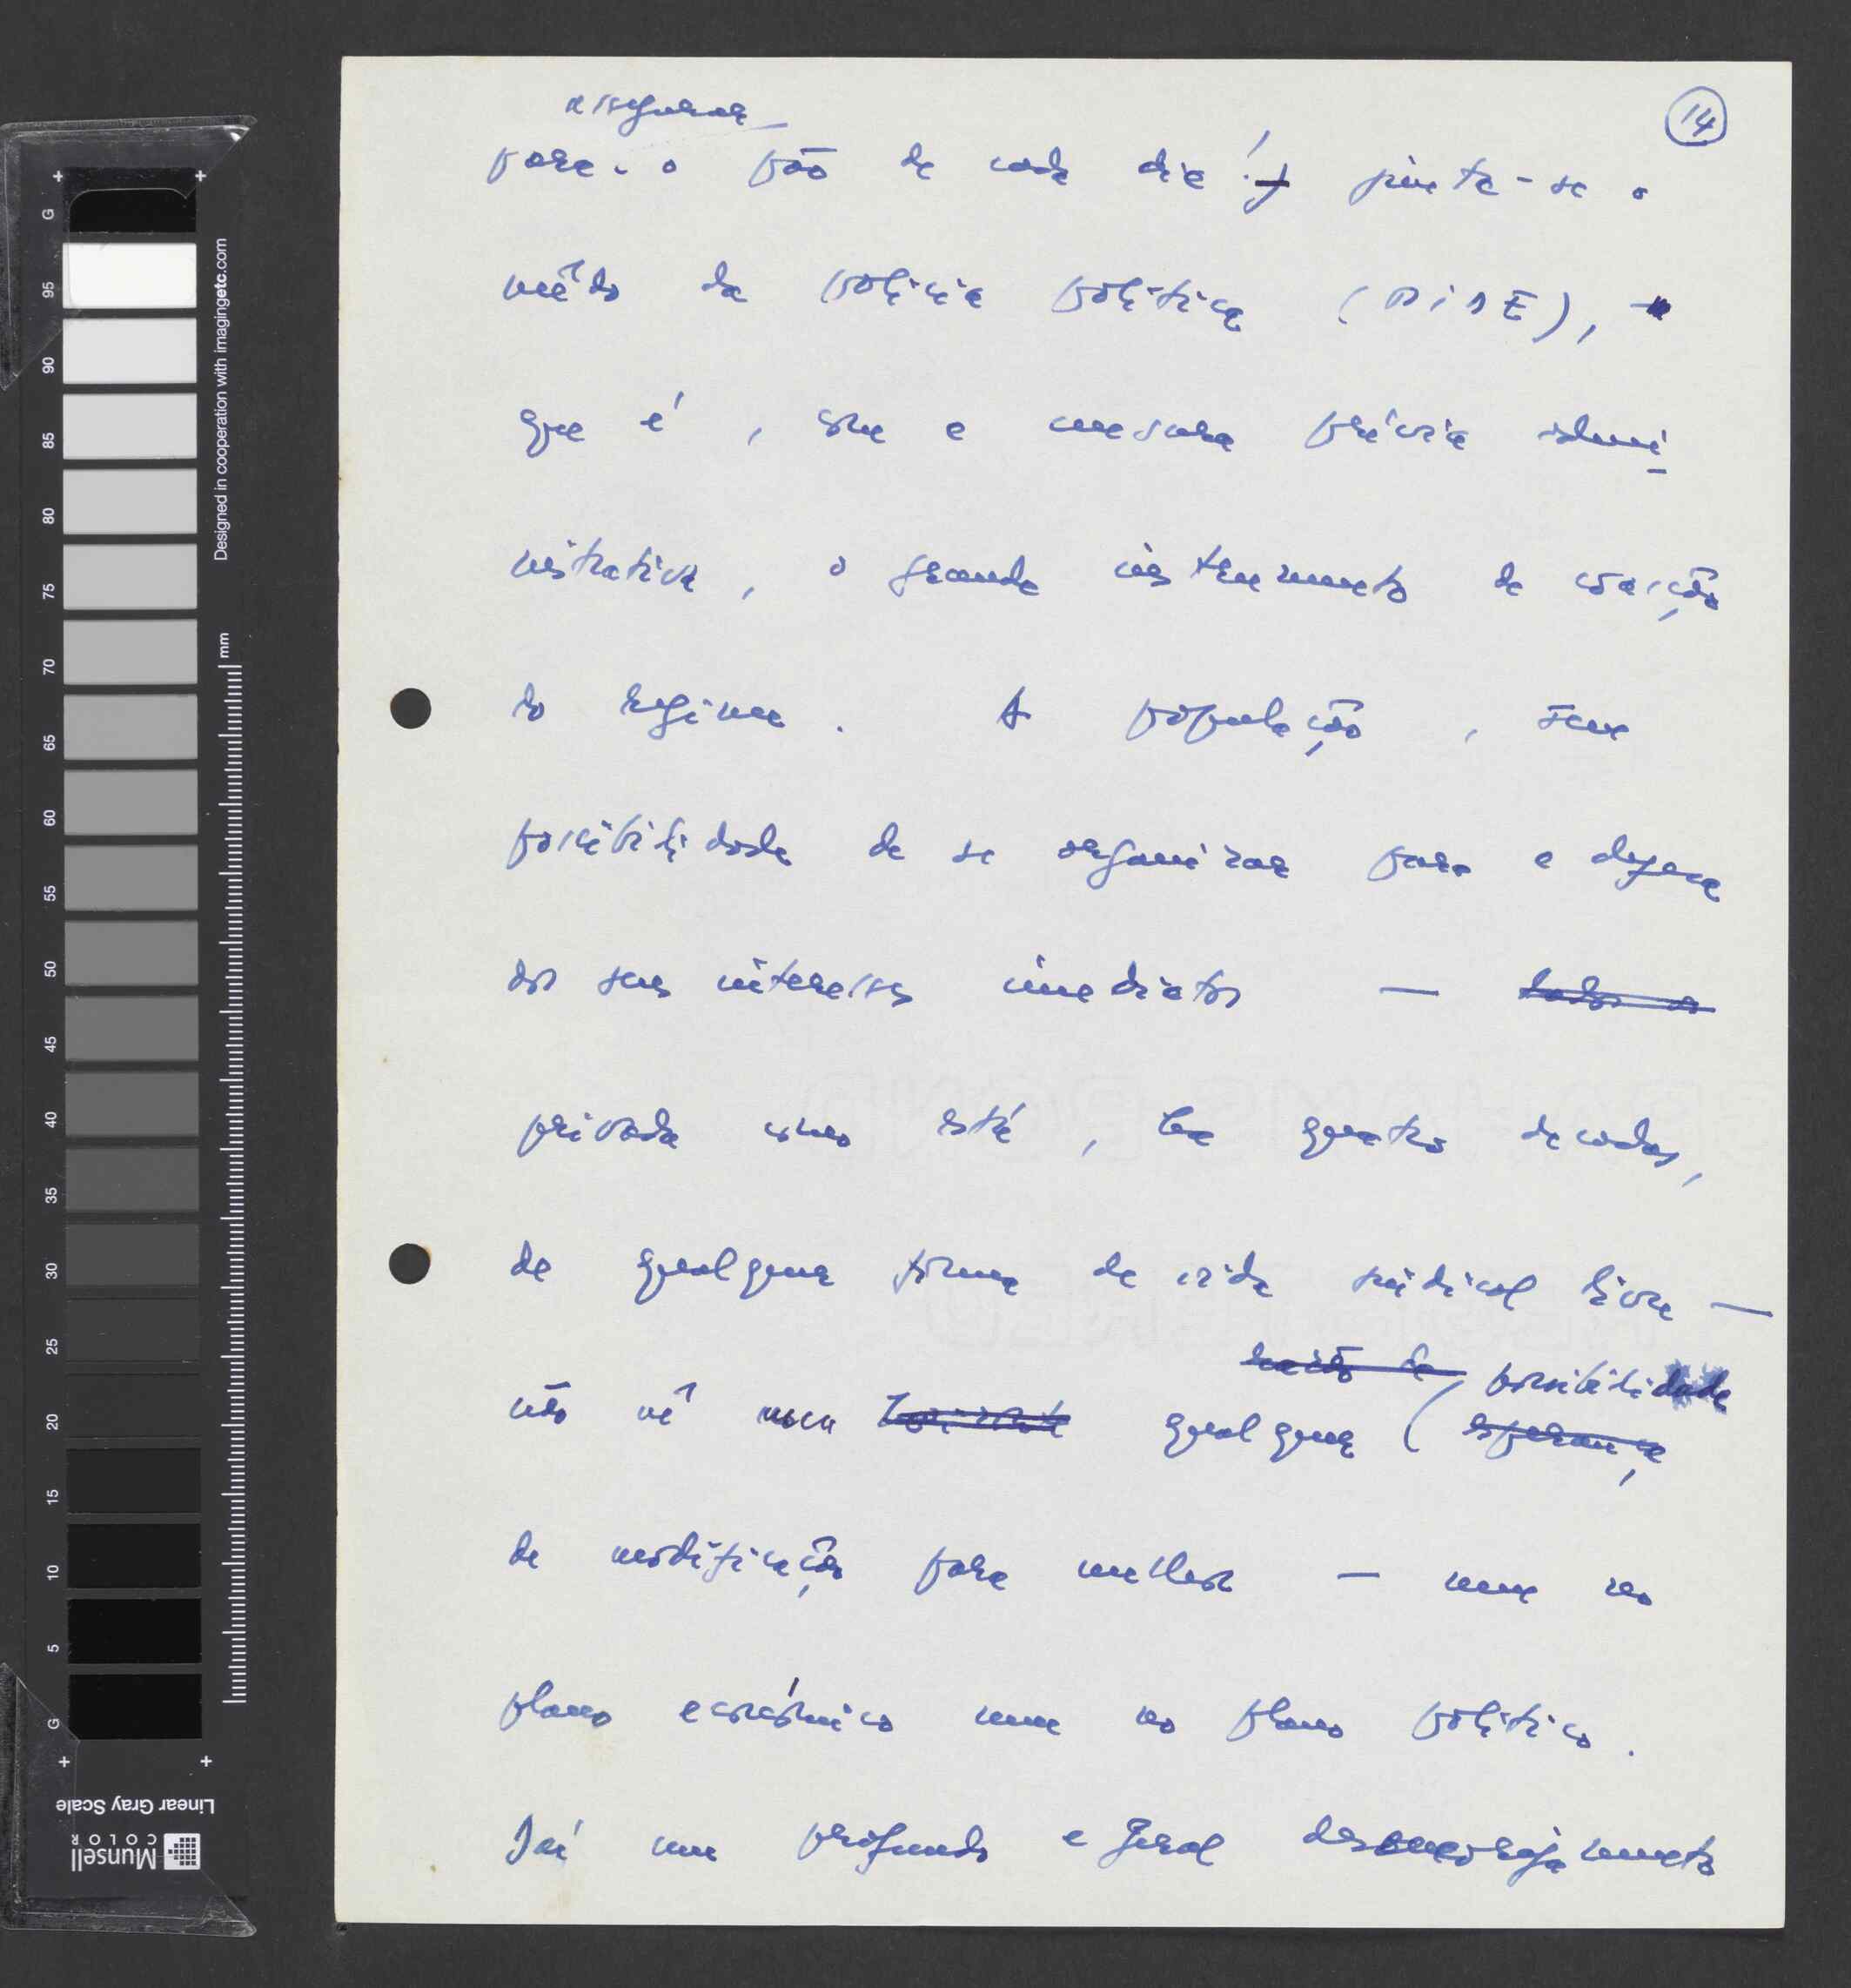 14
assegurar
para o pão de cada dia! junta-se o
mêdo da polícia política (PIDE),
que é, com a censura prévia admi
nistrativa, o grande instrumento de coacção
do regime. A população, sem
possibilidade de se organizar para a defesa
dos seus interesses imediatos — todos os
privada como está, há quatro decadas,
de qualquer forma de vida sindical livre —
razão de possibilidade
não vê qualquer esperança
de modificação para melhor — nem no
plano económico nem no plano político.
Daí um profundo e geral desencorajamento
G 95 90 85 80 75 70 65 60 55 50 45 40 35 30 25 20 15 10 5 G
Designed in cooperation with imagingetc.com
mm
Linear Gray Scale
Munsell
COLOR